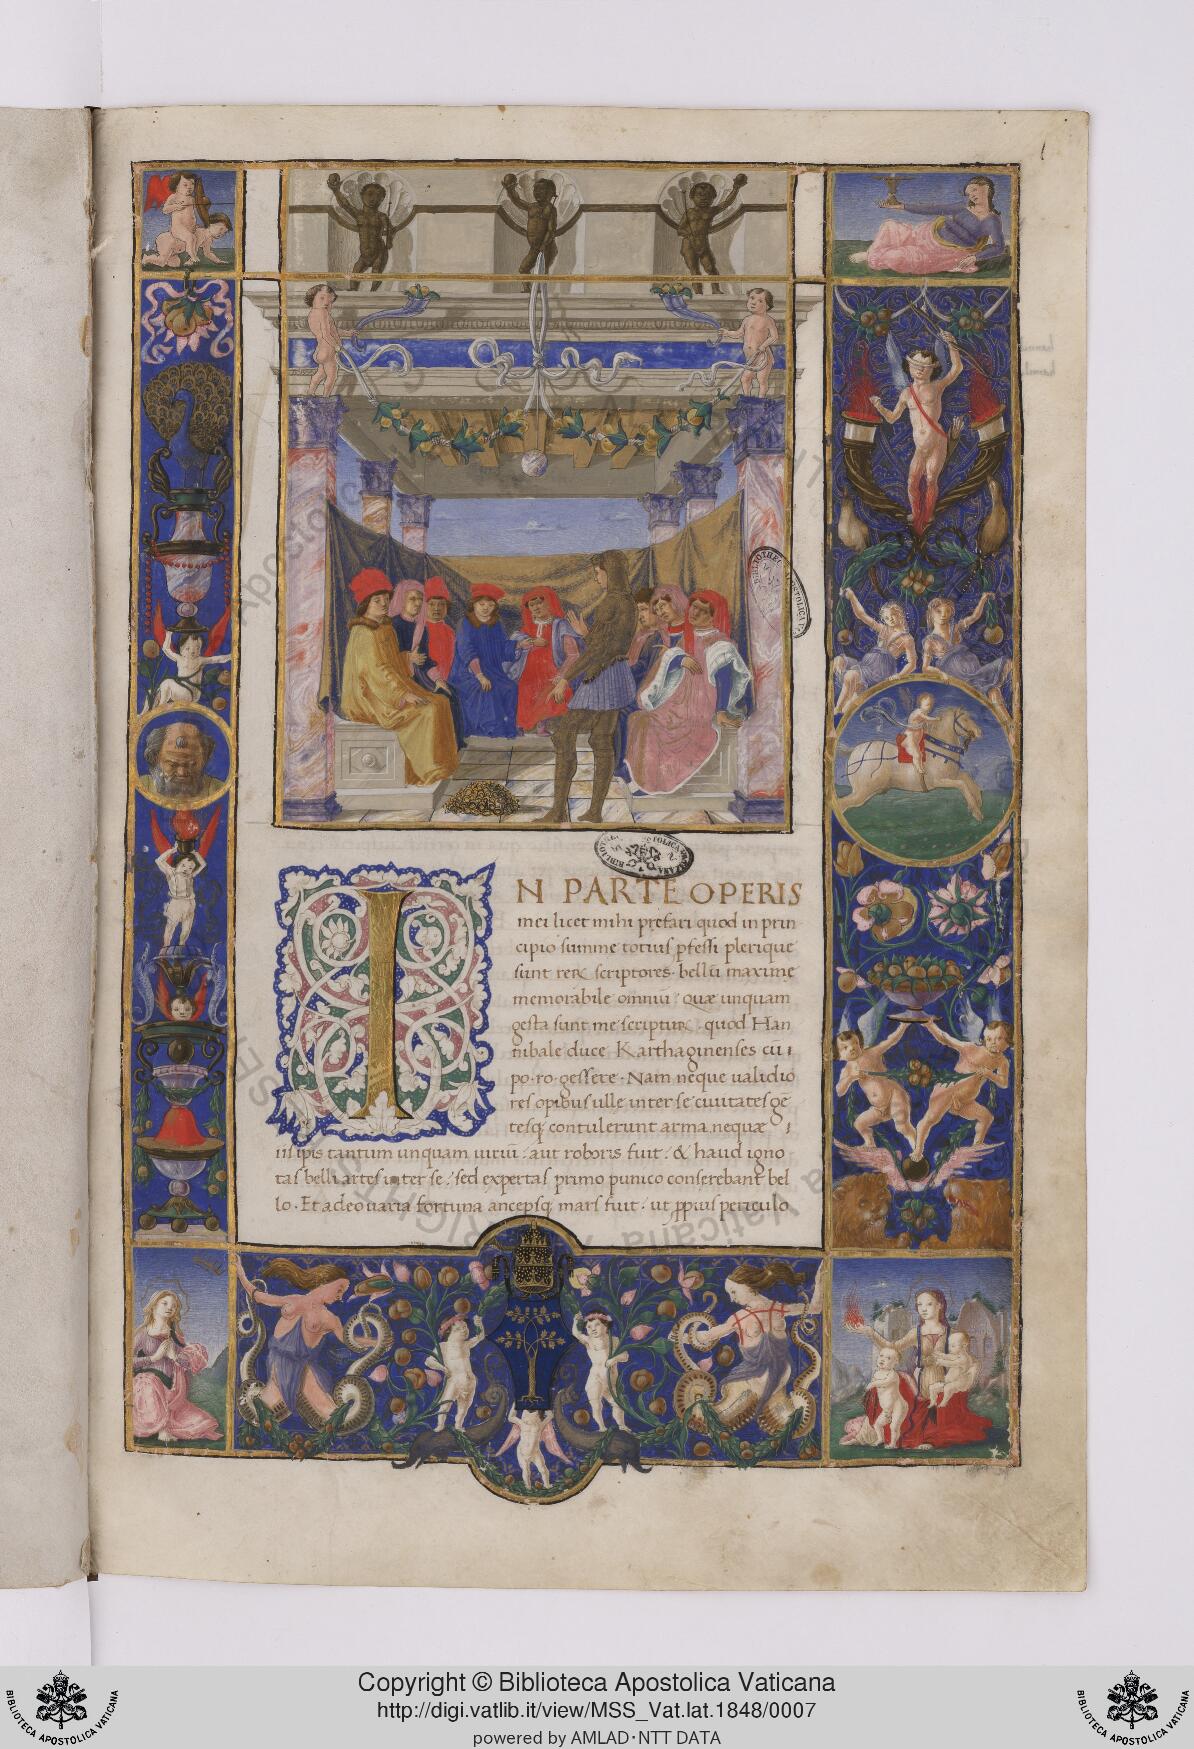 IN PARTE OPERIS
mei licet mihi prefari quod in prin
cipio summe totius pfessi plerique
sunt rerꝝ scriptores. bellũ maxime
memorabile omniũ: quæ unquam
gesta sunt me scripturꝝ. quod Han
nibale duce Karthaginenses cũ .
po. ro. gessere. Nam neque ualidio
res opibus ulle inter se ciuitates gẽ
tesq; contulerunt arma. nequæ
iis ipsis tantum unquam uiriũ. aut roboris fuit. & haud igno
tas belli artes inter se: sed expertas primo punico conserebant bel
lo. Et adeo uaria fortuna ancepsq; mars fuit. ut ꝓpius periculo
Copyright © Biblioteca Apostolica Vaticana
http://digi.vatlib.it/view/MSS_Vat.lat.1848/0007
powered by AMLAD·NTT DATA
BIBLIOTECA APOSTOLICA VATICANA
BIBLIOTECA APOSTOLICA VATICANA